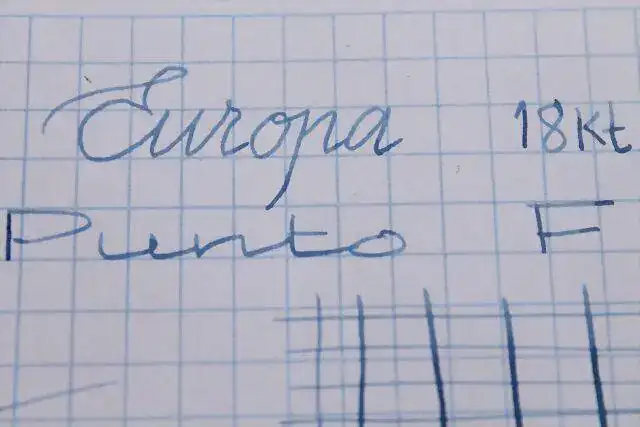 Europa 18kt
Punto F